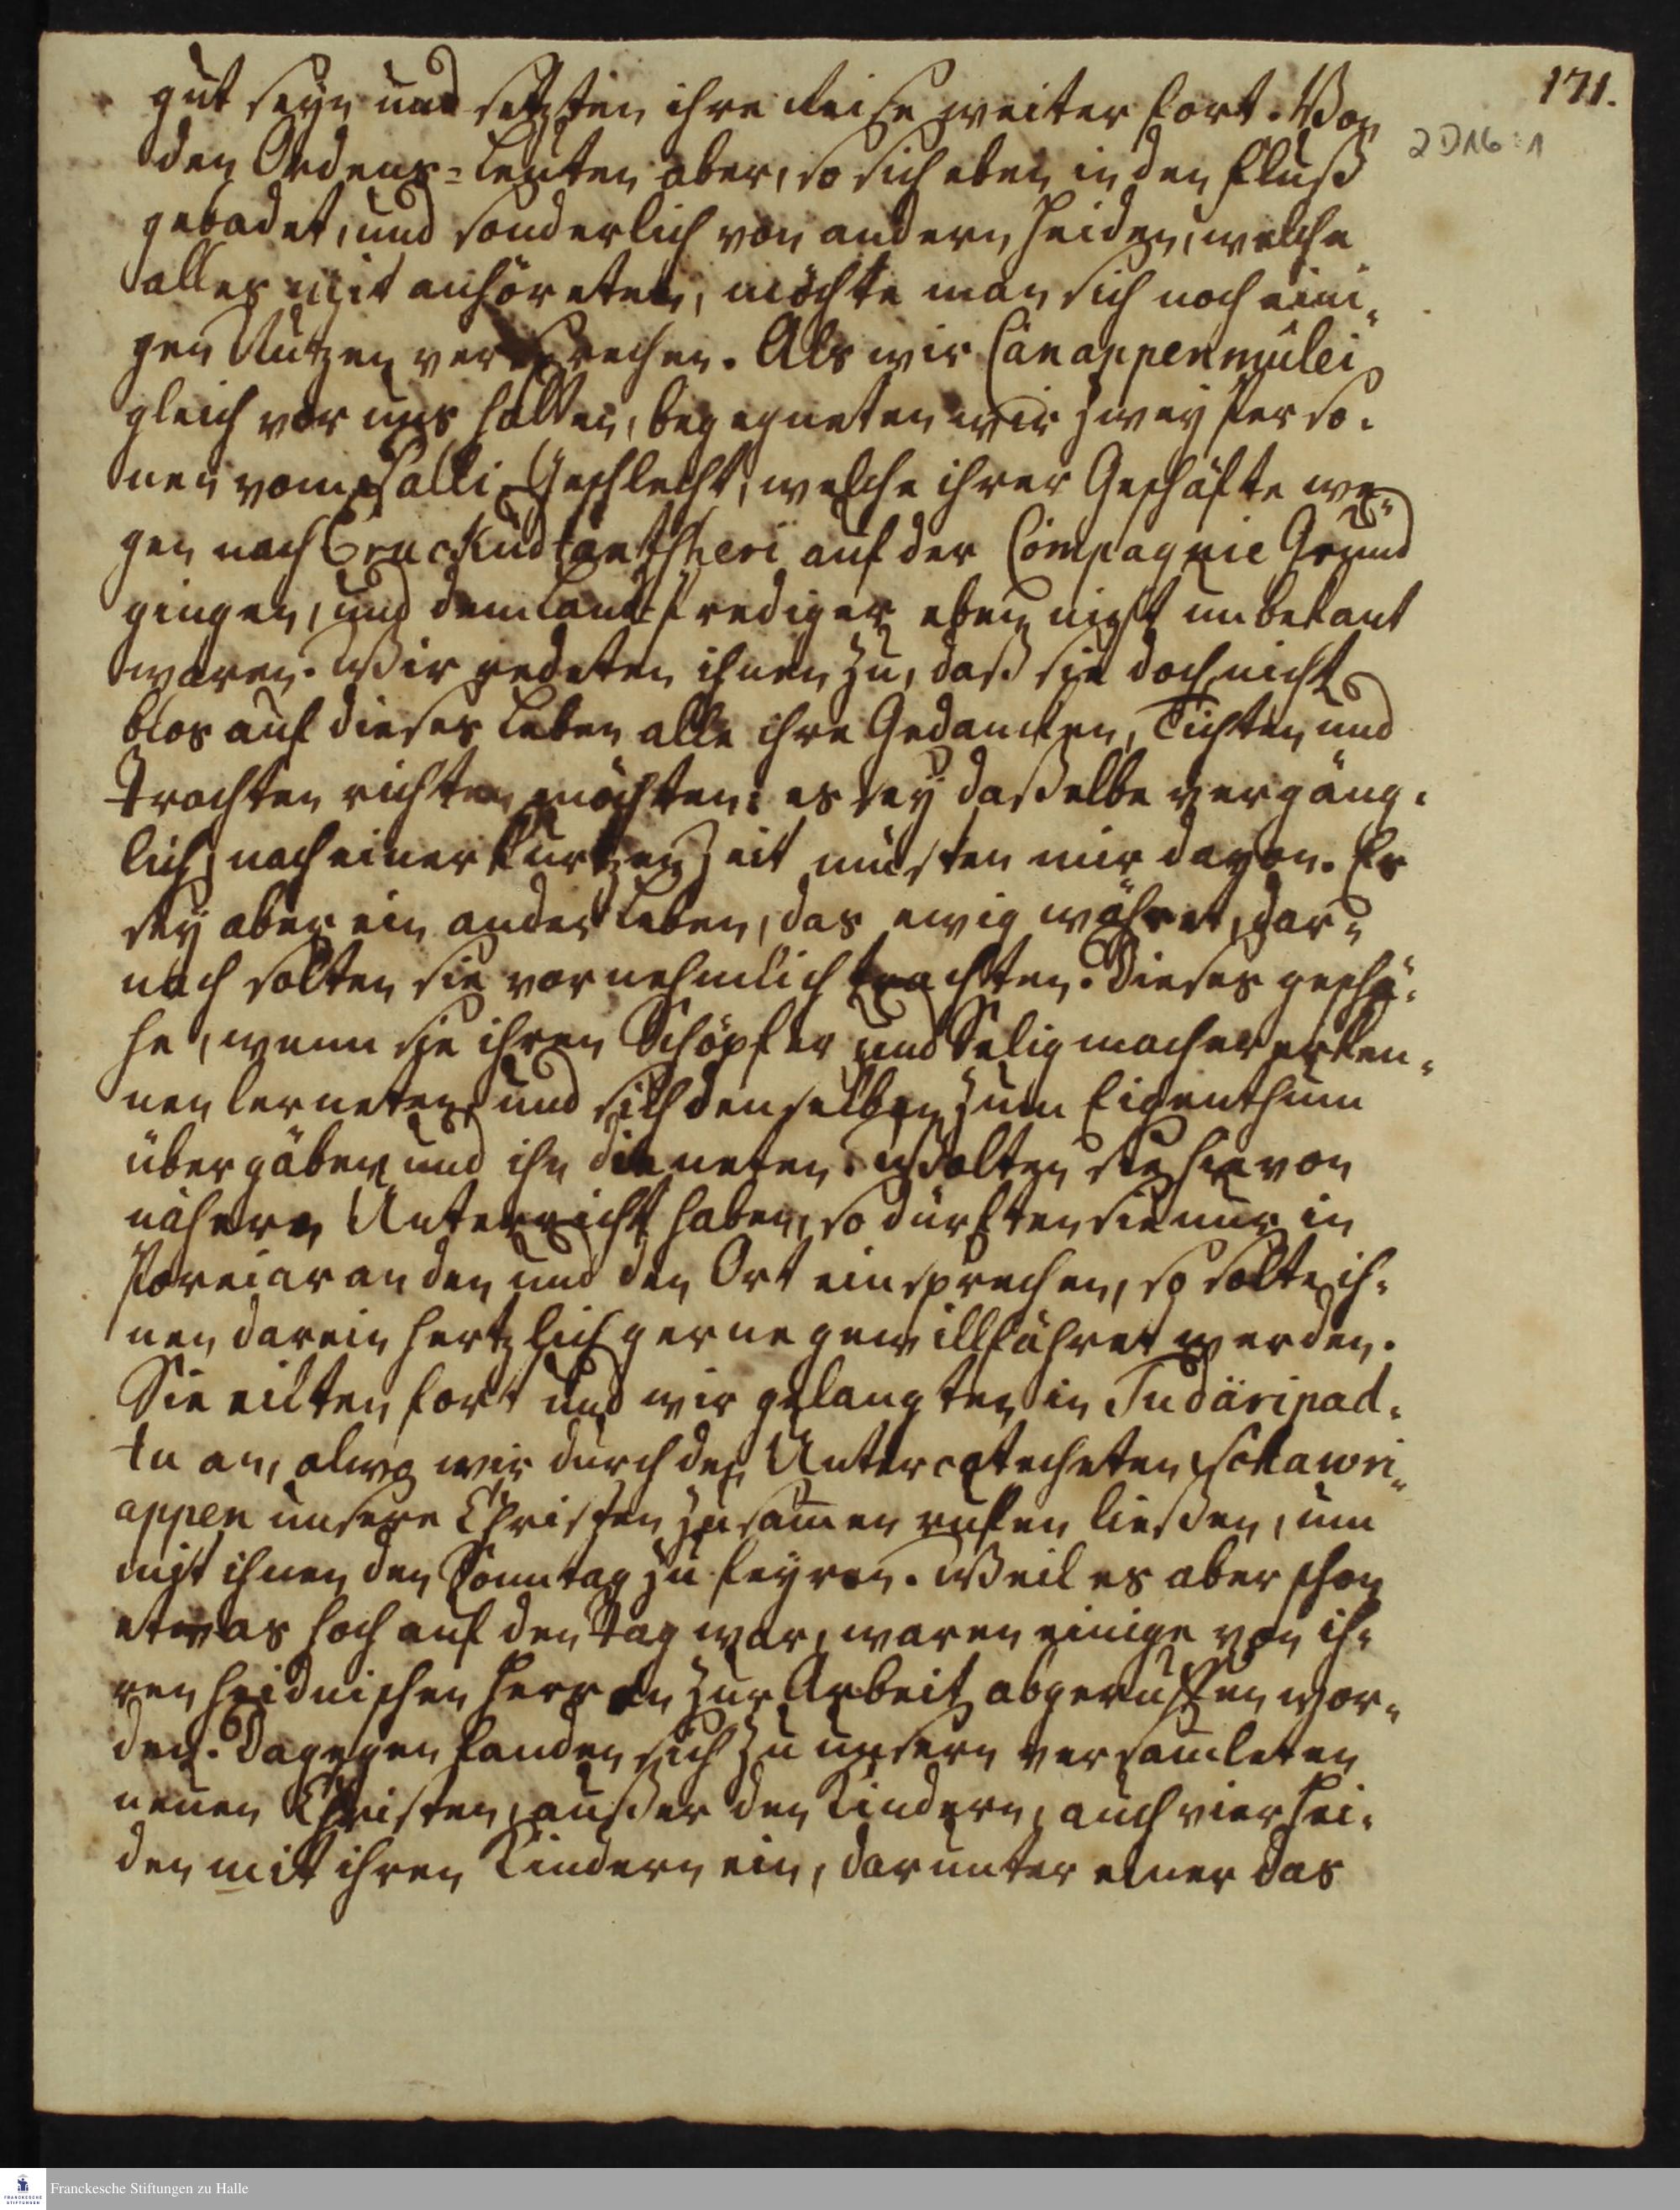 171.
2 D 16 : 1
gut seyn und setzten ihre Reise weiter fort. Von
den Ordens-Leuten aber, so sich eben in den Fluß
gebadet, und sonderlich von andern Heiden, welche
alles mit anhöreten, möchte man sich noch eini-
gen Nutzen versprechen. Als wir Canappenmulei
gleich vor uns hatten, begegneten wir zwey Perso-
nen vom Palli Geschlecht, welche ihrer Geschäfte we-
gen nach auf der Compagnie Grund
gingen, und dem Landprediger eben nicht unbekant
waren. Wir redeten ihnen zu, daß sie doch nicht
blos auf dieses Leben alle ihre Gedancken, Tichten und
Trachten richten möchten: es sey daßelbe vergäng-
lich, nach einer kurtzen Zeit müsten wir davon. Es
sey aber ein ander Leben, das ewig währet, dar-
nach solten sie vornehmlich trachten. Dieses geschä-
he, wenn sie ihren Schöpfer und Seligmacher erken-
nen lerneten und sich denselben zum Eigenthum
übergäben und ihn dieneten. Wolten sie hievon
nähern Unterricht haben, so dürften sie nur in
Poreiar an den und den Ort einsprechen, so solte ih-
nen darein hertzlich gerne gewillfahret werden.
Sie eilten fort und wir gelangten in Tudäripad-
tu an, alwo wir durch den Untercatecheten Schawri-
appen unsere Christen zusammen rufen ließen, um
mit ihnen den Sonntag zu feyren. Weil es aber schon
etwas hoch auf den Tag war, waren einige von ih-
ren heidnischen Herren zur Arbeit abgeruffen wor-
den. Dagegen fanden sich zu unsern versamleten
neuen Christen, außer den Kindern, auch vier Hei-
den mit ihren Kindern ein, darunter einer das
Franckesche Stiftungen zu Halle